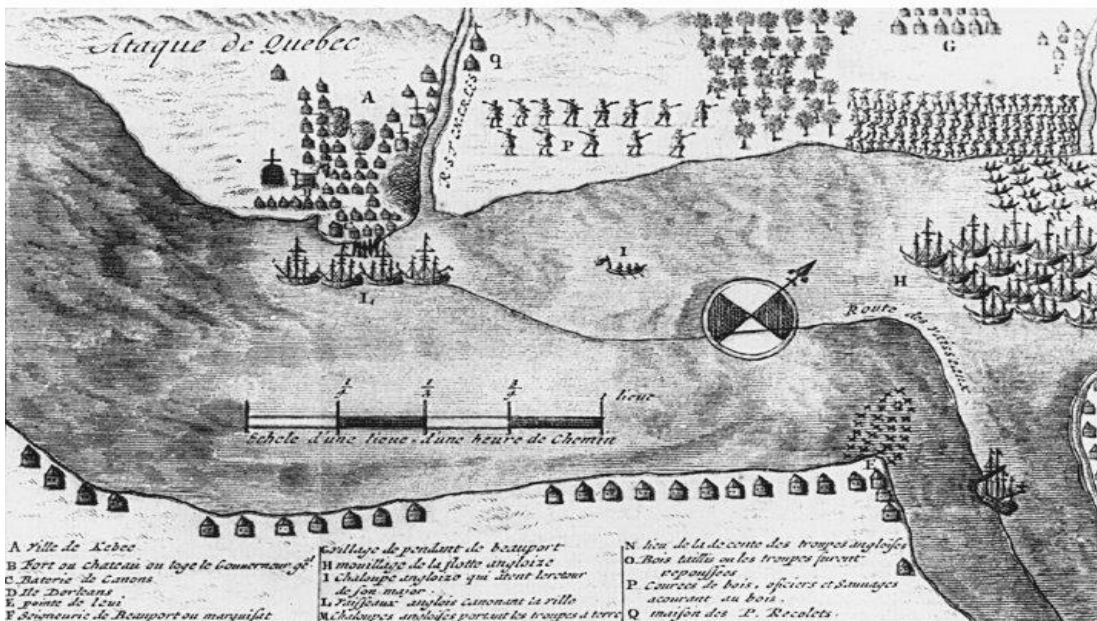 Ataque de Quebec
A
q
G
F
P
I
L
H
Route des Vaisseaux
lieue
Echele d'une lieue d'une heure de Chemin
E
A Ville de Kebec
B Fort ou Chateau ou loge le Gouverneur gēl
C Baterie de Canons
D Ile Dorleans
E pointe de levi
F Seigneurie de Beauport ou marquisat
G village de pendant de beauport
H mouillage de la flotte angloize
I Chaloupe angloize qui atent le retour
de son major.
L Vaisseaux anglois canonant la ville
M Chaloupes angloises portant les troupes a terre
N lieu de la decente des troupes angloises
O Bois taillis ou les troupes furent
repoussées
P Courees de bois, oficiers et Sauvages
acourant au bois.
Q maison des P. Recolets.